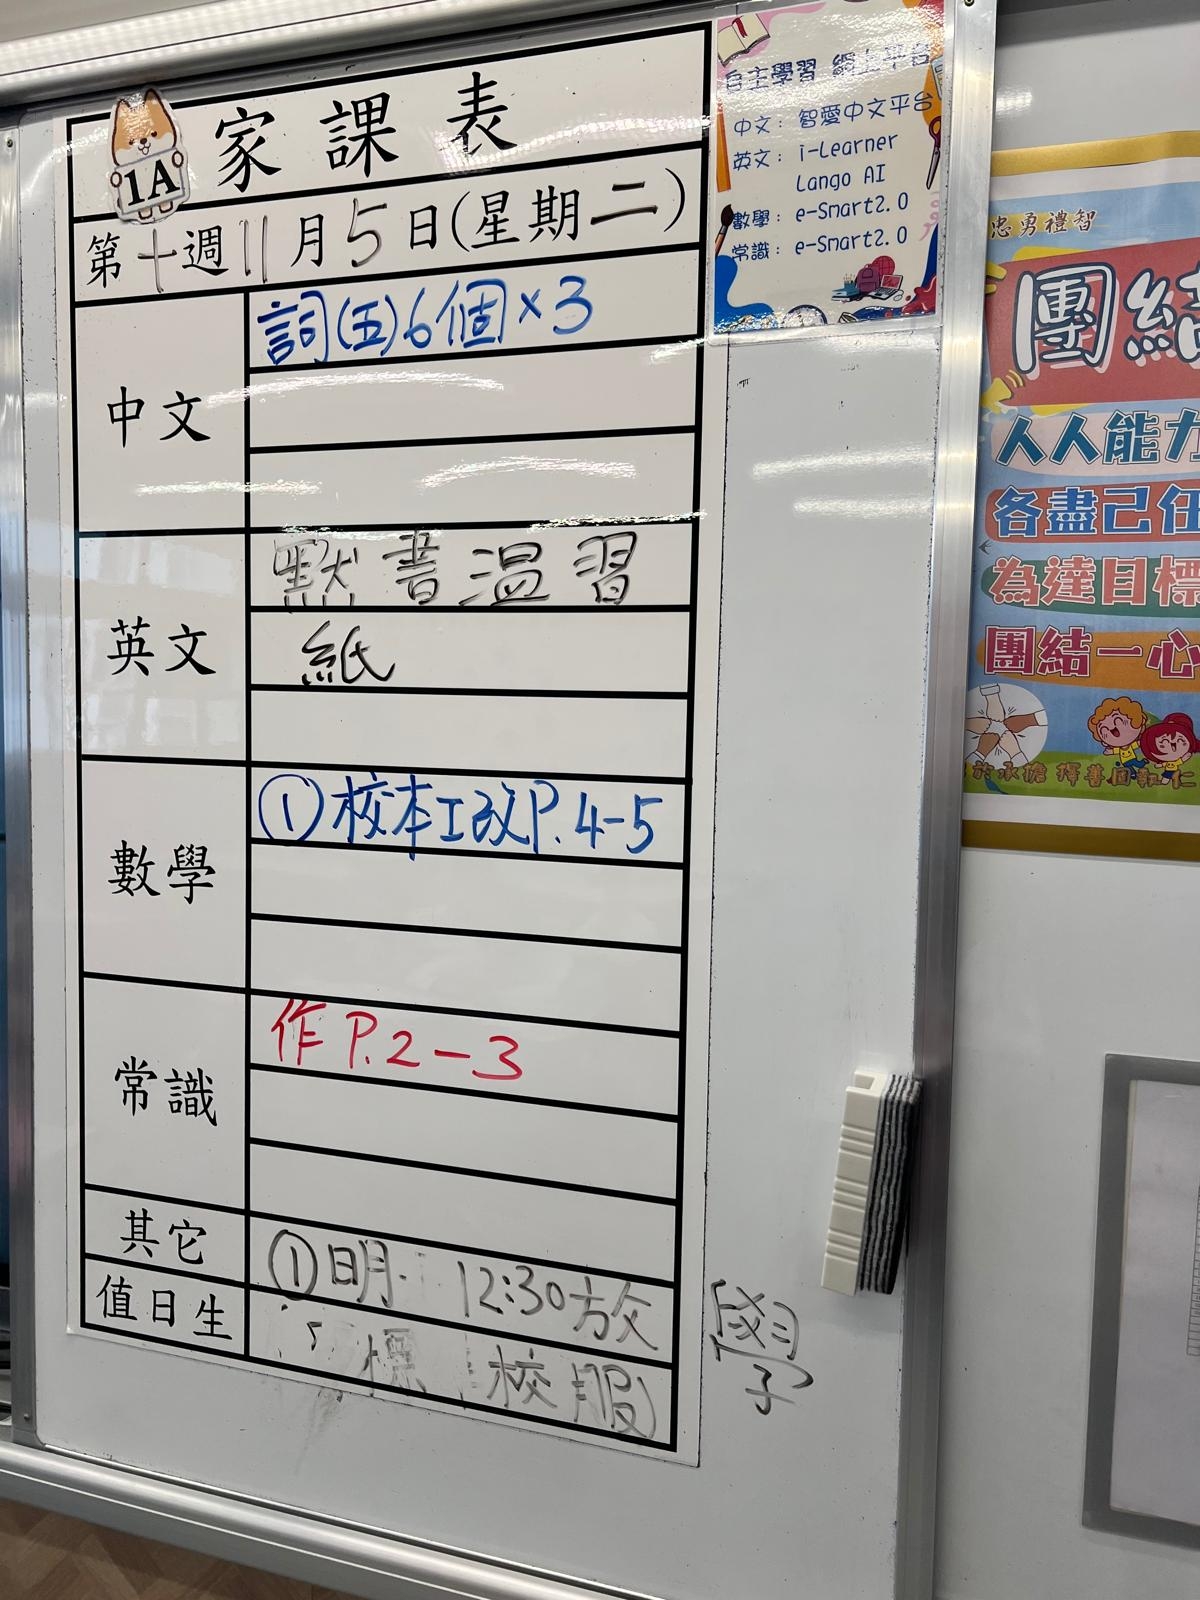 家課表
1A
第十週11月5日(星期二)
中文
詞(五)6個×3
英文
默書溫習
紙
數學
①校本工改P.4-5
常識
作P.2-3
其它
①明 12:30放學
值日生
校服)
自主學習 網上平台
中文: 智愛中文平台
英文: i-Learner
Lango AI
數學: e-Smart2.0
常識: e-Smart2.0
忠勇禮智
團結
人人能力
各盡己任
為達目標
團結一心
於承擔 擇善固執 仁